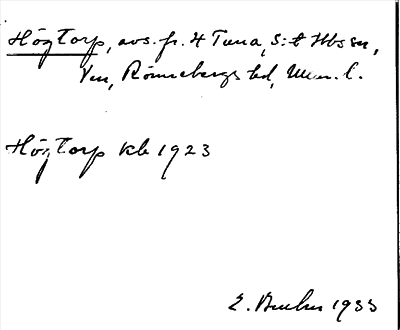 Högtorp, avs. fr. 4 Tuna, S:t Ibs sn,
Ven, Rönnebergs hd, Mlm. l.
Högtorp kb 1923
E. 1933